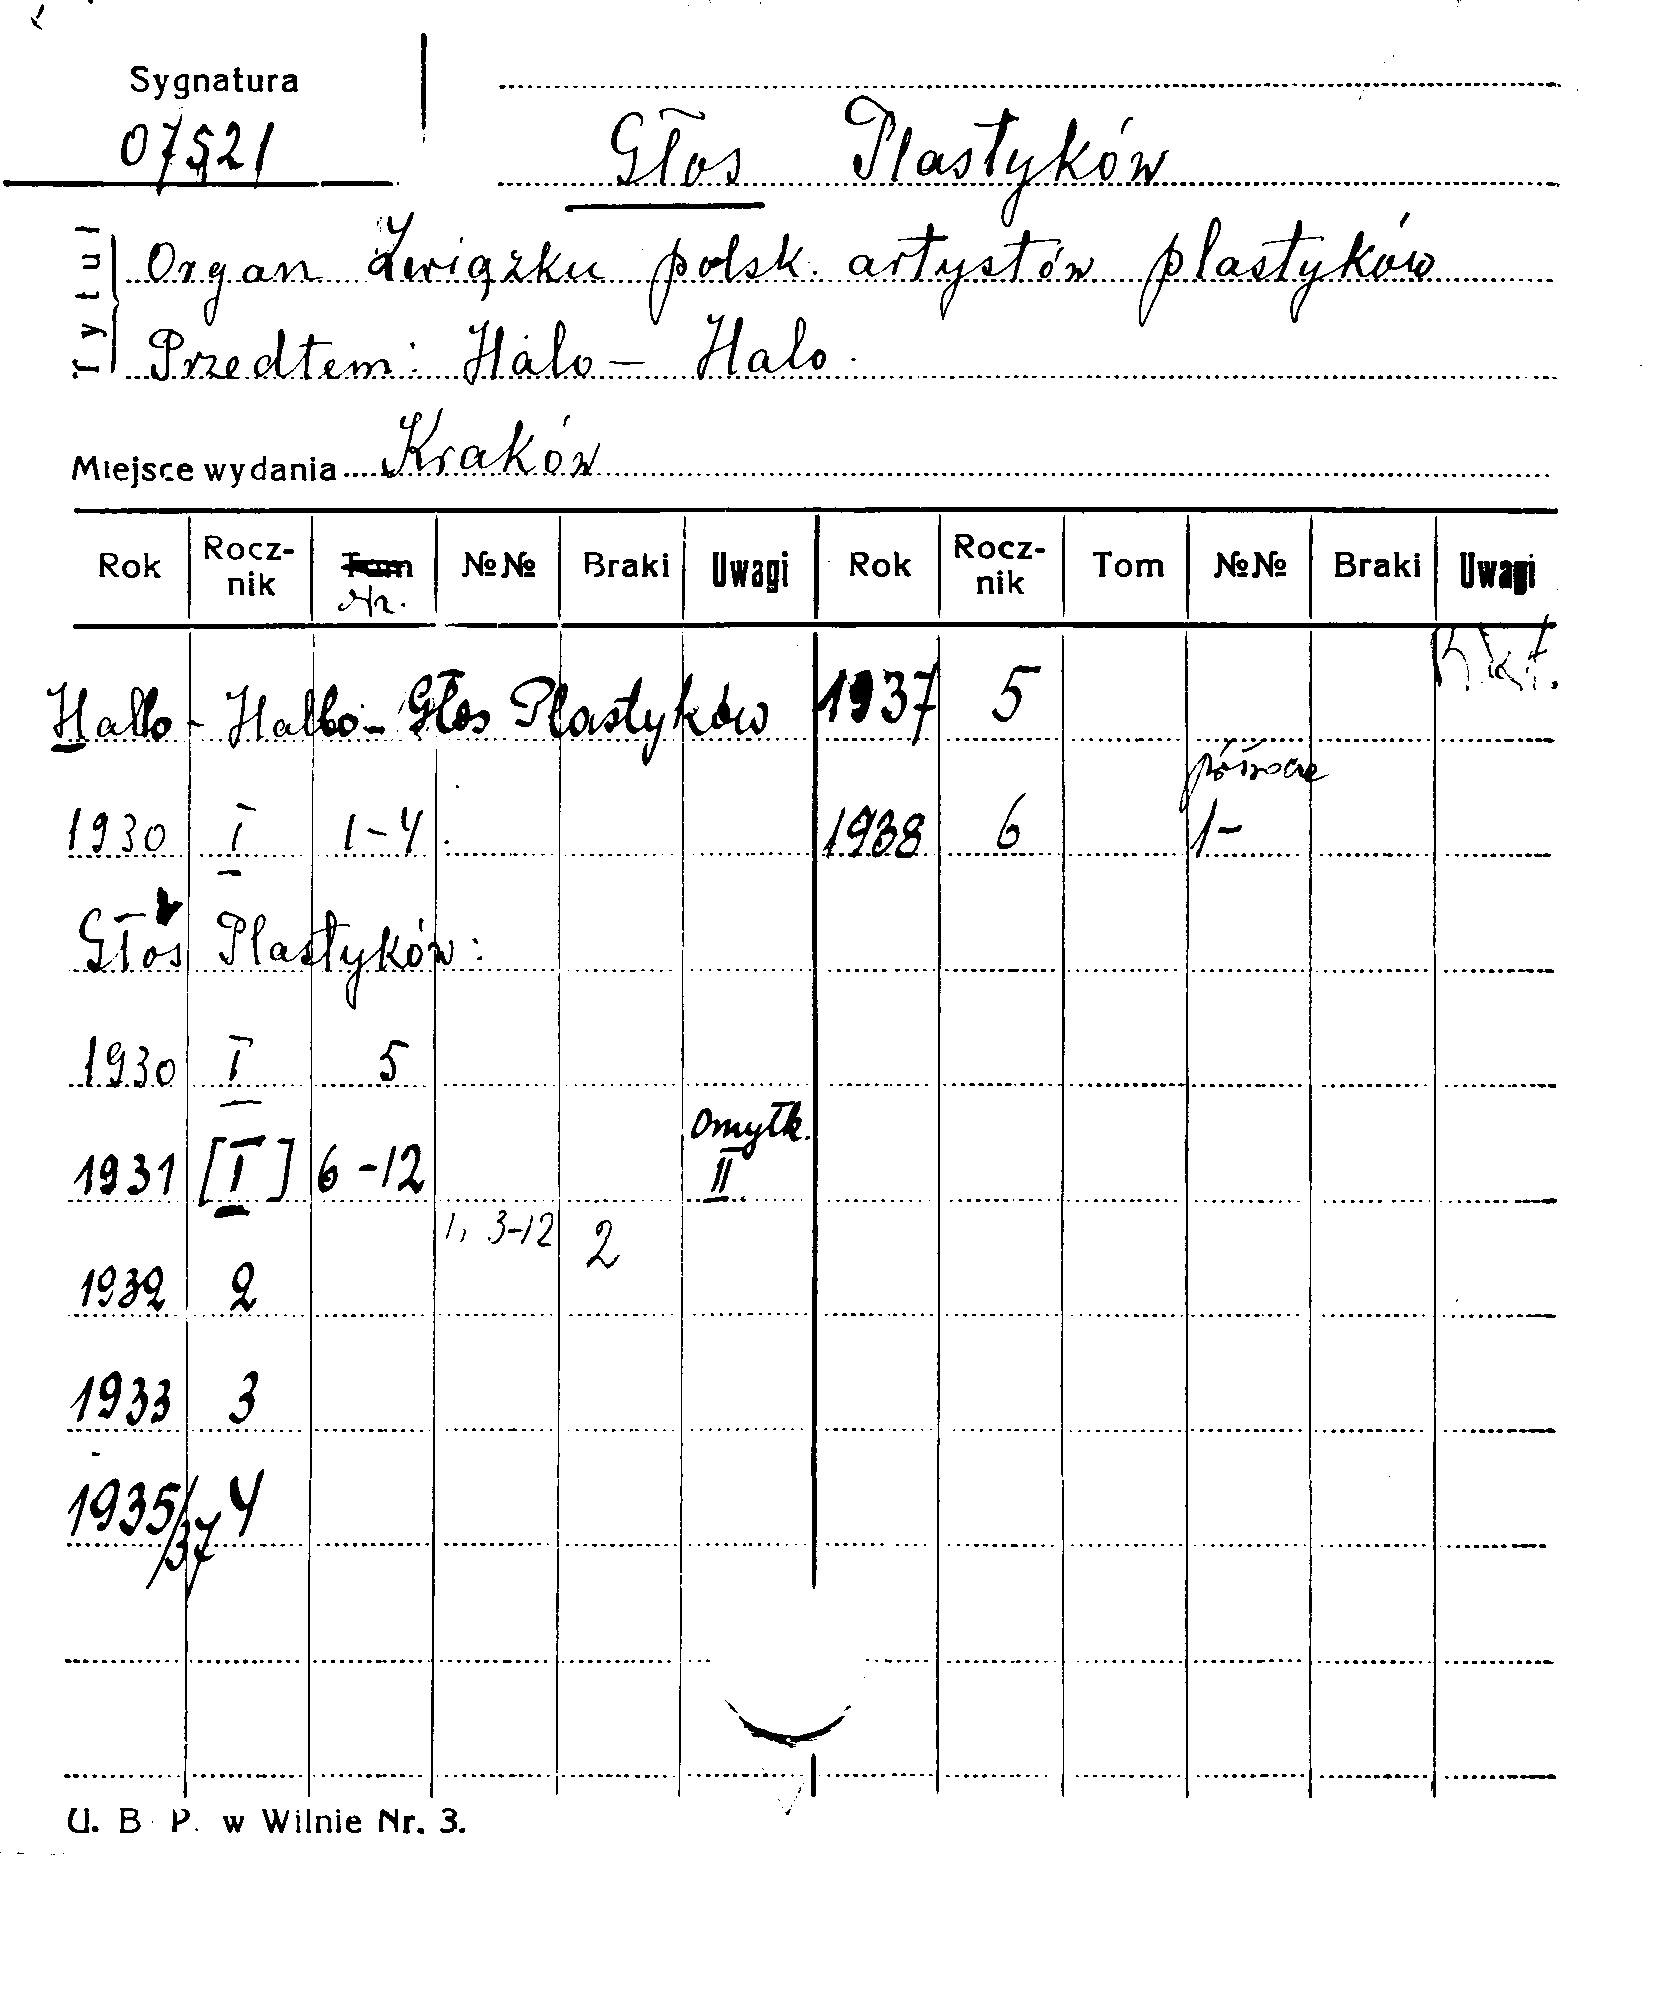 Sygnatura
07521
Głos Plastyków
Tytuł
Organ Związku polsk. artystów plastyków
Przedtem: Halo – Halo.
Miejsce wydania Kraków
Rok Rocz-nik Tom Nr. №№ Braki Uwagi Rok Rocz-nik Tom №№ Braki Uwagi
Hallo - Hallo - Głos Plastyków 1937 5
półrocze
1930 I 1-4 1938 6 1-
Głos Plastyków:
1930 I 5
omyłk.
1931 [I] 6-12 II
1, 3-12 2
1932 2
1933 3
1935/37 4
U. B. P. w Wilnie Nr. 3.